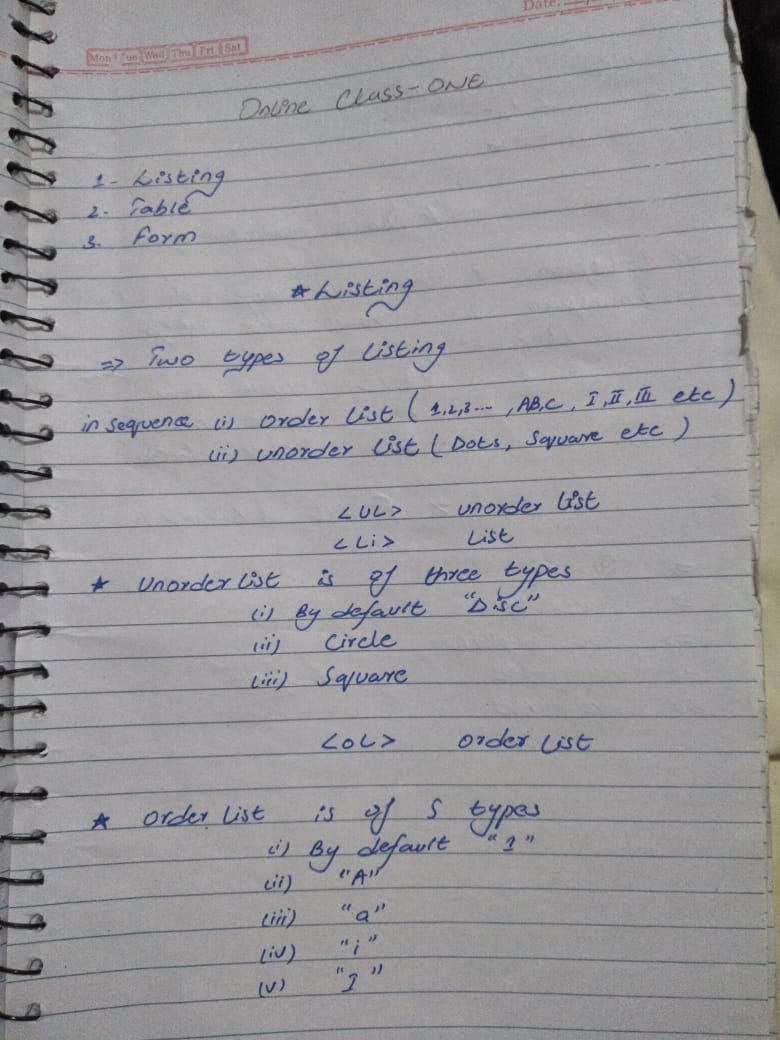 Date:
Mon Tue Wed Thu Fri Sat
Online Class-ONE
1- Listing
2. Table
3. Form
* Listing
=> Two types of listing
in sequence (i) order list ( 1,2,3... , AB,C , I, II, III etc )
(ii) unorder list ( Dots, Square etc )
<UL> unorder list
<Li> List
* unorder list is of three types
(i) By default "Disc"
(ii) Circle
(iii) Square
<OL> order list
* order list is of 5 types
(i) By default "1"
(ii) "A"
(iii) "a"
(iv) "i"
(v) "I"